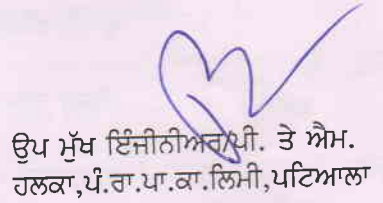 ਉਪ ਮੁੱਖ ਇੰਜੀਨੀਅਰ/ਪੀ. ਤੇ ਐਮ.
ਹਲਕਾ,ਪੰ.ਰਾ.ਪਾ.ਕਾ.ਲਿਮੀ,ਪਟਿਆਲਾ